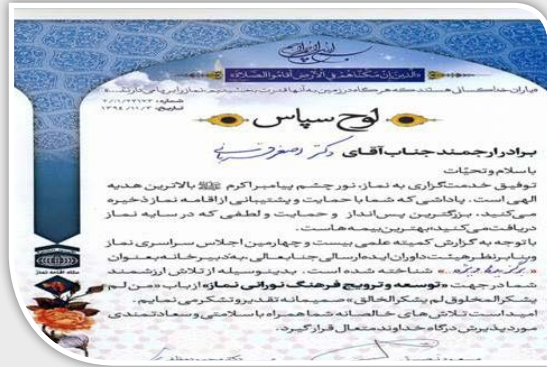 «الَّذِینَ إِن مَّكَّنَّاهُمْ فِی الْأَرْضِ أَقَامُوا الصَّلَاةَ»
«یاران خدا کسانی هستند که هرگاه در زمین به آنها قدرت بخشیدیم، نماز را برپا می‌دارند...»
شماره:
تاریخ:
لوح سپاس
برادر ارجمند جناب آقای دکتر اصغر
با سلام و تحیّات
توفیق خدمتگزاری به نماز، نور چشم پیامبر اکرم ﷺ بالاترین هدیه
الهی است. پاداشی که شما با حمایت و پشتیبانی از اقامه نماز ذخیره
می‌کنید، بزرگترین پس‌انداز و حمایت و لطفی که در سایه نماز
دریافت می‌کنید، بهترین بیمه هاست.
با توجه به گزارش کمیته علمی بیست و چهارمین اجلاس سراسری نماز
و بنابر نظر هیئت داوران ایده ارسالی جنابعالی، به دبیرخانه بعنوان
«» شناخته شده است. بدینوسیله از تلاش ارزشمند
شما در جهت «توسعه و ترویج فرهنگ نورانی نماز» از باب «من لم
یشکر المخلوق لم یشکر الخالق» صمیمانه تقدیر و تشکر می نمایم.
امید است تلاش های خالصانه شما همراه با سلامتی و سعادتمندی
مورد پذیرش درگاه خداوند متعال قرار گیرد.
ستاد اقامه نماز